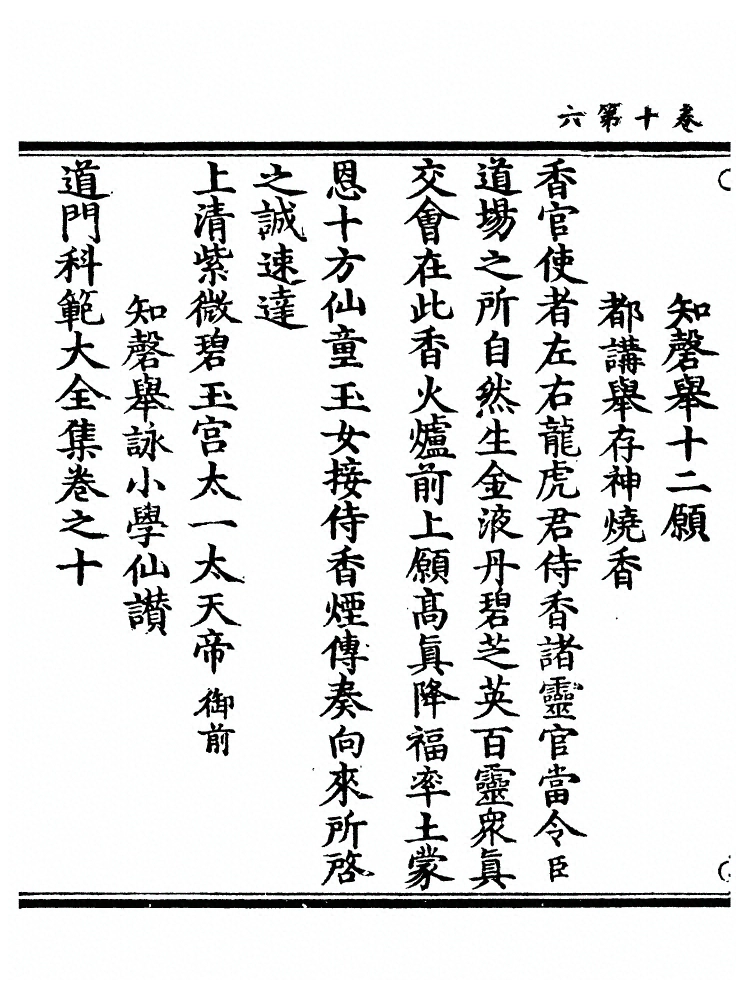 卷十第六
知磬舉十二願
都講舉存神燒香
香官使者左右龍虎君侍香諸靈官當令臣
道場之所自然生金液丹碧芝英百靈衆眞
交會在此香火爐前上願高眞降福率土蒙
恩十方仙童玉女接侍香煙傳奏向來所啓
之誠速達
上清紫微碧玉宮太一太天帝御前
知磬舉詠小學仙讃
道門科範大全集卷之十